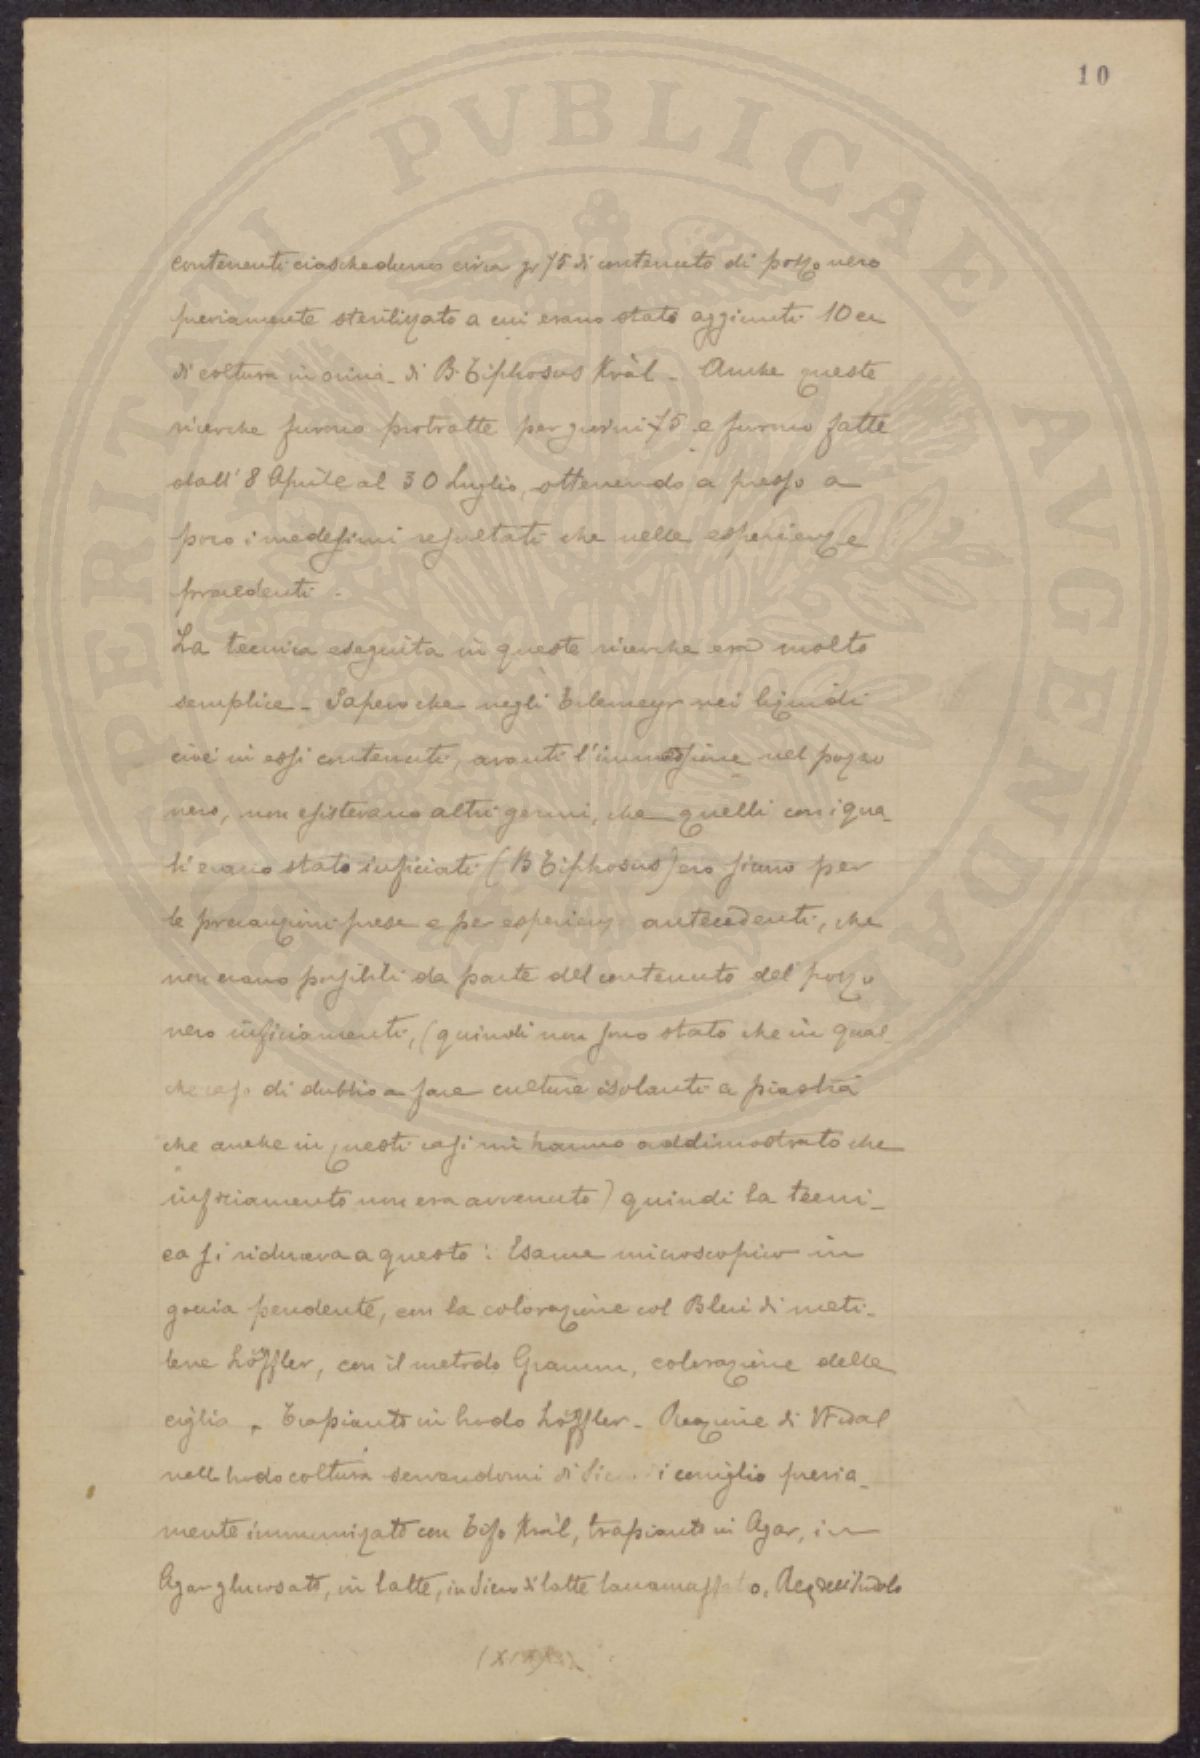 10
contenenti ciascheduno circa gr 75 di contenuto di pozzo nero
previamente sterilizzato a cui erano stato aggiunti 10 cc
di coltura in orina di B. Tiphosus Kràl - Anche queste
ricerche furono protratte per giorni 75 e furono fatte
dall' 8 Aprile al 30 Luglio, ottenendo a presso a
poco i medesimi resultati che nelle esperienze
precedenti -
La tecnica eseguita in queste ricerche era molto
semplice - Sapevo che negli Erlemeyr nei liquidi
cioè in essi contenuti, avanti l'immessione nel pozzo
nero, non esistevano altri germi, che quelli con i qua-
li erano stato inficiati (B Tiphosus) ero sicuro per
le precauzioni prese e per esperienz antecedenti, che
non erano possibili da parte del contenuto del pozzo
nero inficiamenti, (quindi non sono stato che in qual-
che caso di dubbio a fare culture isolanti a piastra
che anche in questi casi mi hanno addimostrato che
inficiamento non era avvenuto) quindi la tecni-
ca si riduceva a questo: Esame microscopico in
goccia pendente, con la colorazione col Bleu di meti-
lene Löffler, con il metodo Gramm, colorazione delle
ciglia. Trapianto in brodo Löffler - Reazione di Vidal
nelle brodo coltura servendomi di Siero di coniglio previa-
mente immunizzato con Tifo Kràl, trapianto in Agar, in
Agar glucosato, in latte, in Siero di latte laccamuffato.
PROSPERITATI PVBLICAE AVGENDAE